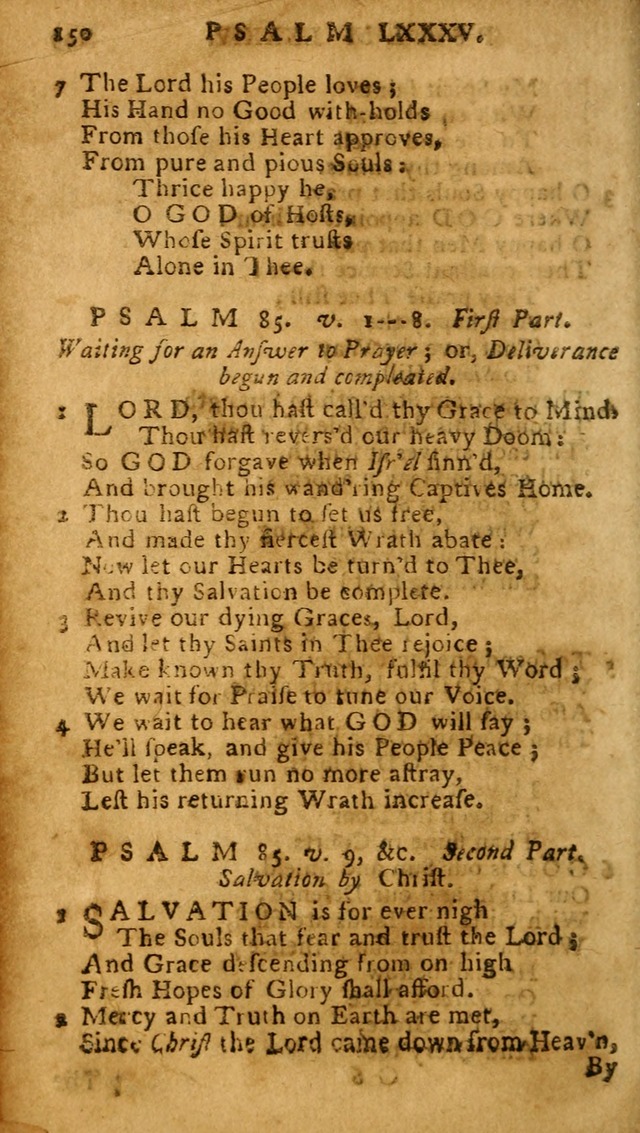 150 PSALM LXXXV.
7 The Lord his People loves;
His Hand no Good with-holds
From thoſe his Heart approves,
From pure and pious Souls:
Thrice happy he,
O GOD of Hoſts,
Whoſe Spirit truſts
Alone in Thee.
PSALM 85. v. 1---8. Firſt Part.
Waiting for an Anſwer to Prayer; or, Deliverance
begun and compleated.
1 LORD, thou haſt call'd thy Grace to Mind,
Thou haſt revers'd our heavy Doom:
So GOD forgave when Iſr'el ſinn'd,
And brought his wand'ring Captives Home.
2 Thou haſt begun to ſet us free,
And made thy fierceſt Wrath abate:
Now let our Hearts be turn'd to Thee,
And thy Salvation be complete.
3 Revive our dying Graces, Lord,
And let thy Saints in Thee rejoice;
Make known thy Truth, fulfil thy Word;
We wait for Praiſe to tune our Voice.
4 We wait to hear what GOD will ſay;
He'll ſpeak, and give his People Peace;
But let them run no more aſtray,
Leſt his returning Wrath increaſe.
PSALM 85. v. 9, &c. Second Part.
Salvation by Chriſt.
1 SALVATION is for ever nigh
The Souls that fear and truſt the Lord;
And Grace deſcending from on high
Freſh Hopes of Glory ſhall afford.
2 Mercy and Truth on Earth are met,
Since Chriſt the Lord came down from Heav'n,
By